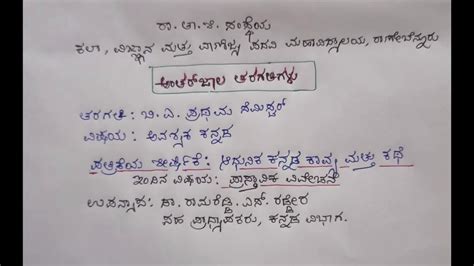 ರಾ. ಆ. ಶಿ. ಸಂಸ್ಥೆಯ
ಕಲಾ, ವಿಜ್ಞಾನ ಮತ್ತು ವಾಣಿಜ್ಯ ಪದವಿ ಮಹಾವಿದ್ಯಾಲಯ, ರಾಣೇಬೆನ್ನೂರು
ಅಂತರ್ಜಾಲ ತರಗತಿಗಳು
ತರಗತಿ: ಬಿ. ಎ. ಪ್ರಥಮ ಸೆಮಿಸ್ಟರ್
ವಿಷಯ: ಅವಶ್ಯಕ ಕನ್ನಡ
ಪತ್ರಿಕೆಯ ಶೀರ್ಷಿಕೆ: ಆಧುನಿಕ ಕನ್ನಡ ಕಾವ್ಯ ಮತ್ತು ಕಥೆ
ಇಂದಿನ ವಿಷಯ: ಪ್ರಾಸ್ತಾವಿಕ ವಿವೇಚನೆ
ಉಪನ್ಯಾಸ: ಡಾ. ರಾಮರೆಡ್ಡಿ. ಎಸ್. ರಡ್ಡೇರ
ಸಹ ಪ್ರಾಧ್ಯಾಪಕರು, ಕನ್ನಡ ವಿಭಾಗ.